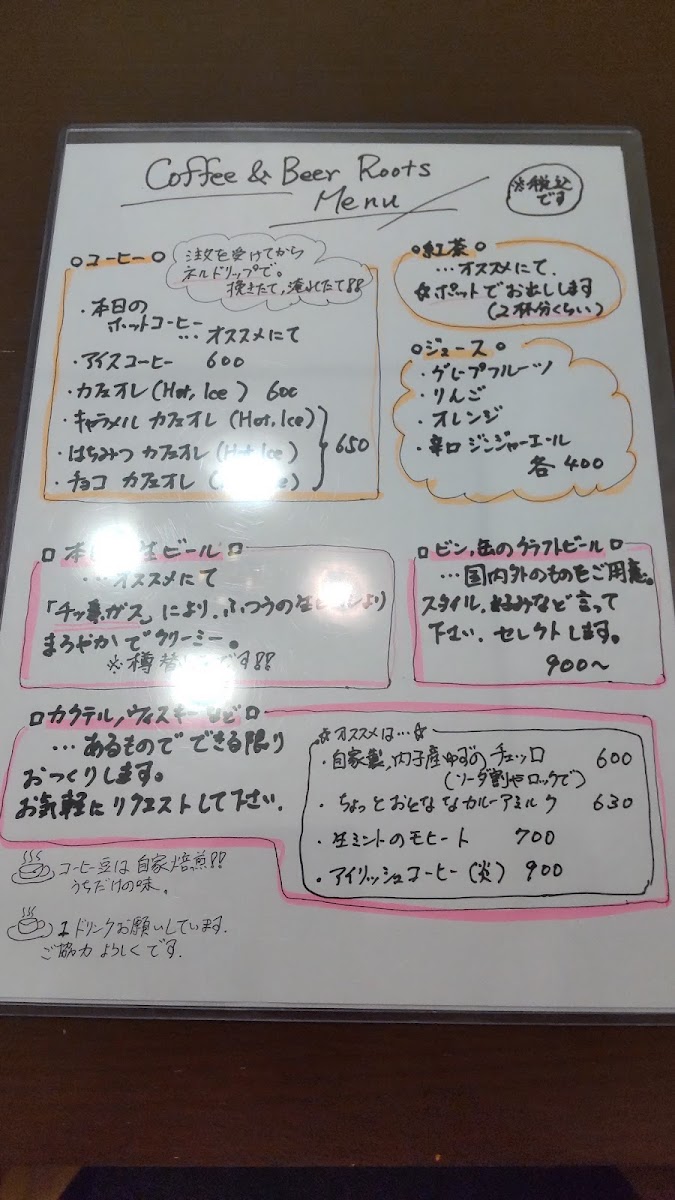 Coffee & Beer Roots
Menu
※税込
です
コーヒー
注文を受けてから
ネルドリップで。
挽きたて,淹れたて!!
・本日の
ホットコーヒー
…オススメにて
・アイスコーヒー 600
・カフェオレ(Hot, Ice) 600
・キャラメル カフェオレ (Hot, Ice)
・はちみつ カフェオレ (Hot, Ice)
・チョコ カフェオレ
650
紅茶
…オススメにて.
☆ポットでお出しします
(2杯分くらい)
ジュース
・グレープフルーツ
・りんご
・オレンジ
・辛口ジンジャーエール
各400
生ビール
…オススメにて
「チッ素ガス」により,ふつうの生ビールより
まろやかでクリーミー。
※樽
です!!
ビン,缶のクラフトビール
…国内外のものをご用意。
スタイル,好みなど言って
下さい. セレクトします。
900〜
カクテル,ウィスキーなど
…あるものでできる限り
おつくりします。
お気軽にリクエストして下さい.
☆オススメは…☆
・自家製,内子産ゆずのチェッロ 600
(ソーダ割やロックで)
・ちょっとおとななカルーアミルク 630
・生ミントのモヒート 700
・アイリッシュコーヒー(炎) 900
コーヒー豆は自家焙煎!!
うちだけの味。
1ドリンクお願いしています.
ご協力よろしくです.